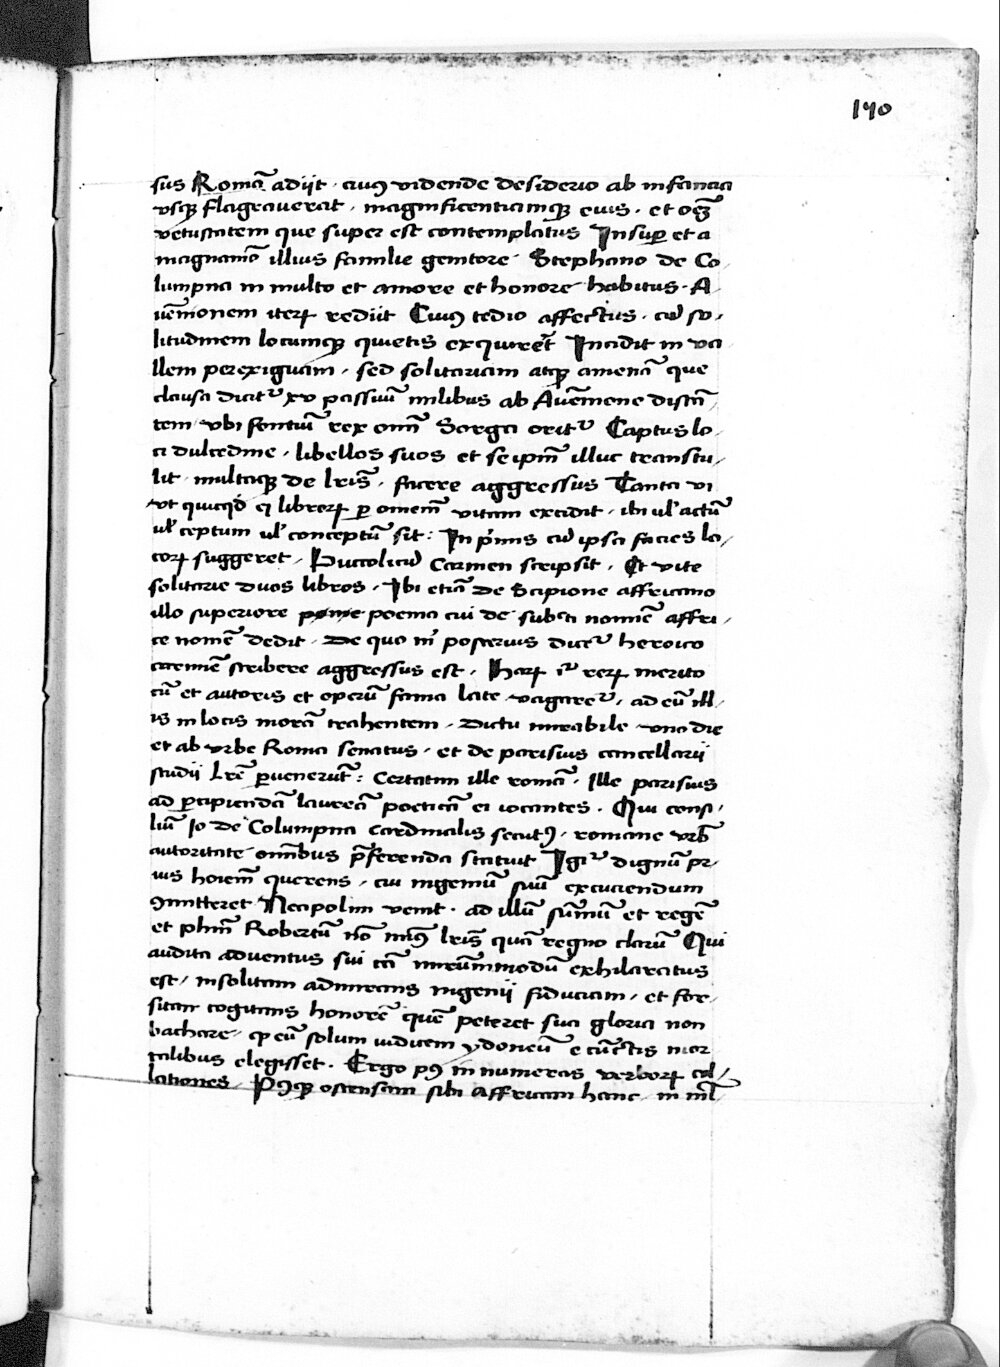 190
sus Romā adijt · cuiꝰ vidende desiderio ab infancia
vsqꝫ flagrauerat · magnificenciamqꝫ eius · et oēm
vetustatem que super est contemplatus Insuꝑ et a
magnanīo illius familie genitore · Stephano de Co
lumpna in multo et amore et honore habitus · A
uēnionem iteꝝ redijt Cuiꝰ tedio affectus · cū so
litudinem locumqꝫ quietis exquireret̄ Incidit in va
llem perexiguam · sed solitariam atqꝫ amenā que
clausa dicit᷑ xv passuū milibus ab Auēnione distā
tem vbi fontiū rex oīm̄ Sorga orit᷑ Captus lo
ci dulcedine · libellos suos et se ipm̄ illuc transtu
lit · multaqꝫ de lrīs · facere aggressus Tanta vi
vt quicqͥd ei libroꝝ ꝑ omnem̄ vitam excidit · ibi ul' actū
ul' ceptum ul' conceptū sit : In pͥmis cū ipsa facies lo
coꝝ suggeret · Buccolicū Carmen scripsit · Et vite
solitarie duos libros · Ibi etiā de Scipione affricano
illo superiore poeme poema cui de subacti nomīe affri
ce nomē dedit · De quo in̄ posterius dicet᷑ heroico
carmīe scribere aggressus est · Haꝝ it᷑ reꝝ merito
cū et autoris et operū fama late vagaret᷑ · ad eū ill
is in locis morā trahentem · Dictu mirabile vna die
et ab vrbe Roma senatus · et de parisius cancellarij
studij lrē ꝑuenerūt : Certatim ille romā · Ille parisius
ad ꝑcipiendā laureā poeticā ei vocantes · Qui consi
liū Io de Columpna Cardinalis secutꝰ · romane vrbis
autoritate omībus p̄ferenda statuit Igit᷑ dignū pr
ius hoīem querens · cui ingeniū suū excuciendum
ꝯmitteret Neapolim venit · ad illū sūmū et regē
et phm̄ Robertū nō minꝰ lrīs quā regno clarū Qui
audita aduentus sui cā mirūmmodū exhilaratus
est · insolitam admirans ingenij fiduciam · et for
sitan cogitans honorē quē peteret sua gloria non
vachare · ꝙ eū solum iudicem ydoneū e cūctis mor
talibus elegisset · Ergo pꝰ in numeras verboꝝ col
lationes · Pꝰqꝫ ostensam sibi affricam hanc in ml